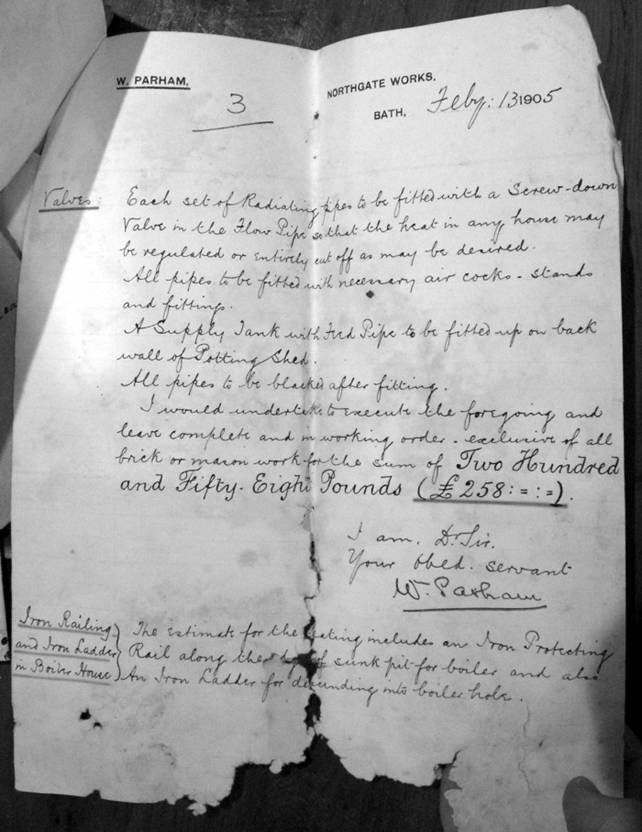 W. PARHAM,
3
NORTHGATE WORKS,
BATH, Feby: 13 1905
Valves: Each set of Radiating pipes to be fitted with a Screw-down
Valve in the Flow Pipe so that the heat in any house may
be regulated or Entirely cut off as may be desired.
All pipes to be fitted with necessary air cocks - stands
and fittings.
A Supply Tank with Feed Pipe to be fitted up on back
wall of Potting Shed.
All pipes to be blacked after fitting.
I would undertake to execute the foregoing and
leave complete and in working order - exclusive of all
brick or mason work for the sum of Two Hundred
and Fifty-Eight Pounds (£258:=:=).
I am, Dr. Sir.
Your obed. servant
W. Parham
Iron Railing
and Iron Ladder
in Boiler House
The Estimate for the Heating includes an Iron Protecting
Rail along the of sunk pit for boiler and also
An Iron Ladder for descending into boiler hole.